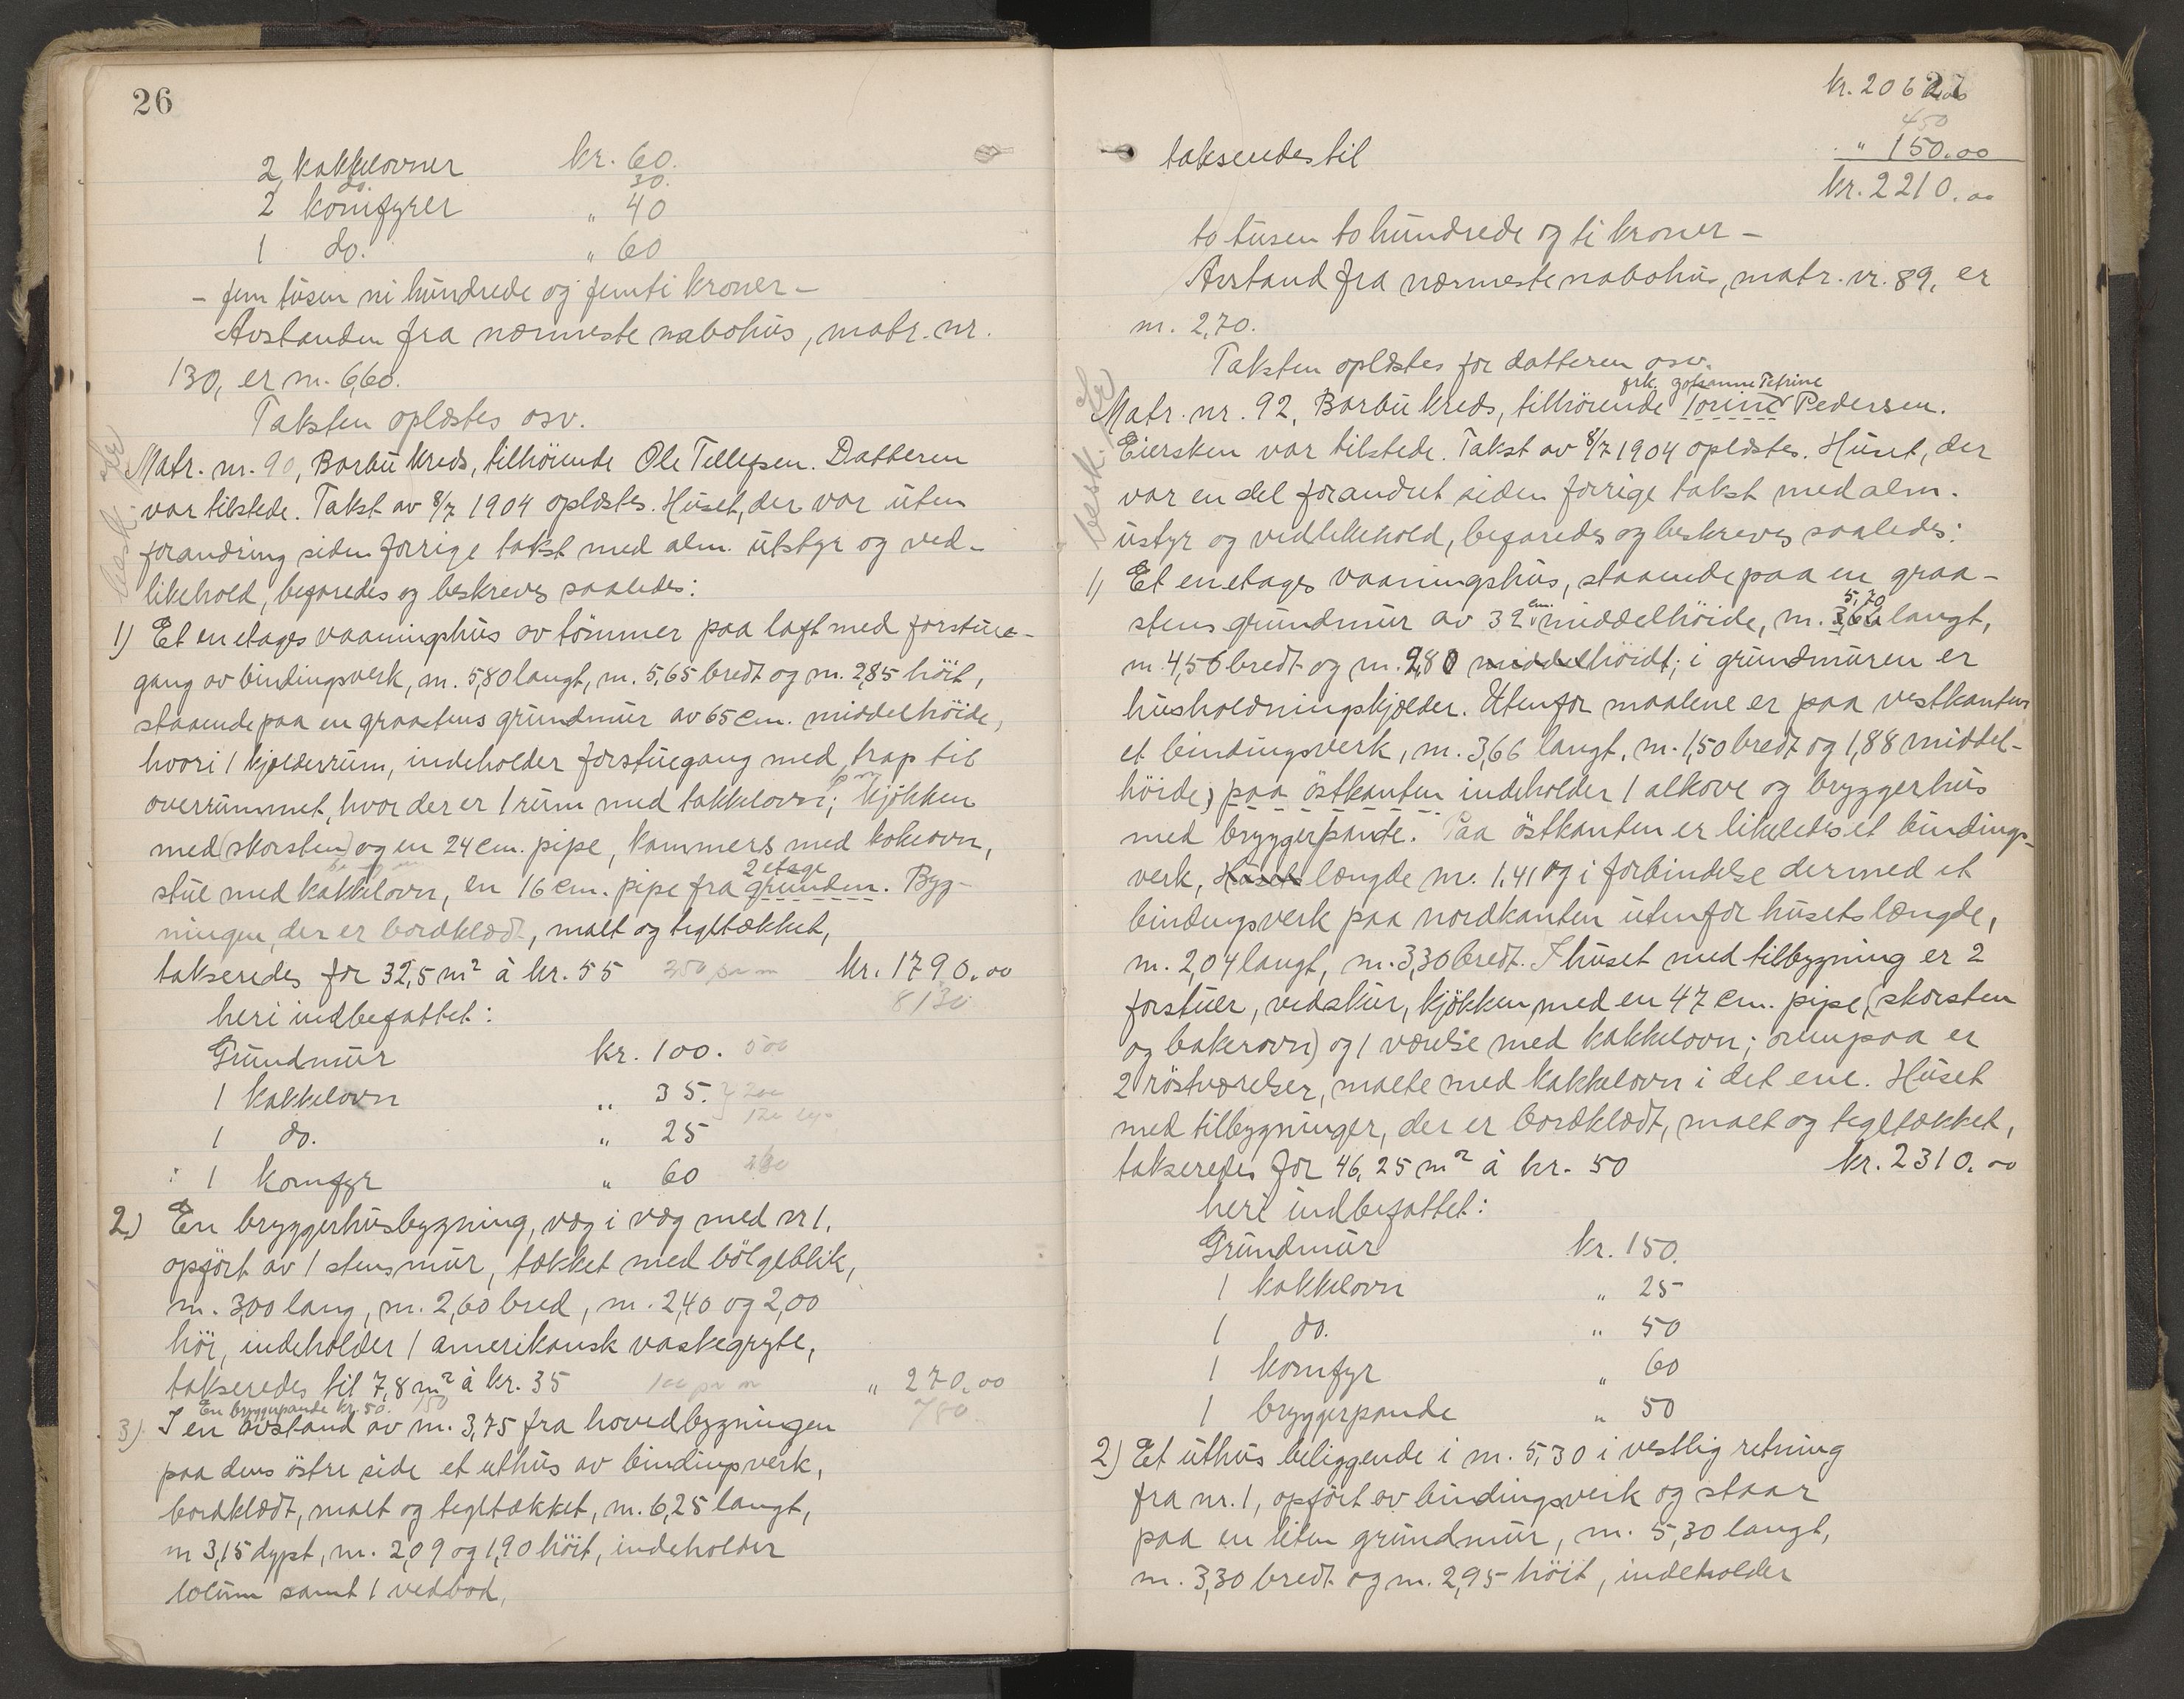 26
2 kakkelovner kr. 60.
do. 30.
2 komfyrer " 40
1 do. " 60
- fem tusen ni hundrede og femti kroner -
Avstanden fra nærmeste nabohus, matr. nr.
130, er m. 6,60.
Taksten oplæstes osv.
Matr. nr. 90, Barbu kreds, tilhörende Ole Tellefsen. Datteren
var tilstede. Takst av 8/7 1904 oplæstes. Huset, der var uten
forandring siden forrige takst med alm. utstyr og ved-
likehold, befaredes og beskreves saaledes:
1) Et en etages vaaningshus av tömmer paa laft med forstue-
gang av bindingsverk, m. 5,80 langt, m. 5,65 bredt og m. 2,85 höit,
staaende paa en graastens grundmur av 65 cm. middelhöide,
hvori 1 kjælderrum, indeholder forstuegang med trap til
overrummet, hvor der er 1 rum med kakkelovn; kjökken
med (skorsten) og en 24 cm. pipe, kammers med kokeovn,
2 etage
stue med kakkelovn, en 16 cm. pipe fra grunden. Byg-
ningen, der er bordklædt, malt og tegltækket,
takseredes for 32,5 m² à kr. 55 250 pr m kr. 1790.00
8130
heri indbefattet:
Grundmur kr. 100. 500
1 kakkelovn " 35. } 200
1 do. " 25
1 komfyr " 60
2) En bryggerhusbygning, væg i væg med nr 1,
opfört av 1 stens mur, tækket med bölgeblik,
m. 3,00 lang, m. 2,60 bred, m. 2,40 og 2,00
höi, indeholder 1 amerikansk vaskegryte,
takseredes til 7,8 m² à kr. 35 100 pr m " 270.00
En bryggepande kr. 50. 150 780
3) I en avstand av m. 3,75 fra hovedbygningen
paa dens östre side et uthus av bindingsverk,
bordklædt, malt og tegltækket, m. 6,25 langt,
m 3,15 dypt, m. 2,09 og 1,90 höit, indeholder
locum samt 1 vedbod,
besk.
27
kr. 2060.00
450
takseredes til " 150.00
kr. 2210.00
to tusen to hundrede og ti kroner -
Avstand fra nærmeste nabohus, matr. nr. 89, er
m. 2,70.
Taksten oplæstes for datteren osv.
frk. Johanne Tefrine
Matr. nr. 92, Barbu kreds, tilhörende Torine Pedersen.
Eiersken var tilstede. Takst av 8/7 1904 oplæstes. Huset, der
var en del forandret siden forrige takst med alm.
ustyr og vedlikehold, befaredes og beskreves saaledes:
1) Et enetages vaaningshus, staaende paa en graa-
cm. 5,70
stens grundmur av 32 middelhöide, m. 3,66 langt,
m. 4,56 bredt og m. 2,80 middelhöidt; i grundmuren er
husholdningskjælder. Utenfor maalene er paa vestkanten
et bindingsverk, m. 3,66 langt, m. 1,50 bredt og 1,88 middel-
höide; paa östkanten indeholder 1 alkove og bryggerhus
med bryggerpande. Paa östkanten er likeledes et bindings-
verk, Husets længde m. 1,41 og i forbindelse dermed et
bindingsverk paa nordkanten utenfor husets længde,
m. 2,04 langt, m. 3,30 bredt. I huset med tilbygning er 2
forstuer, vedskur, kjökken med en 47 cm. pipe, (skorsten
og bakerovn) og 1 værelse med kakkelovn; ovenpaa er
2 röstværelser, malte med kakkelovn i det ene. Huset
med tilbygninger, der er bordklædt, malt og tegltækket,
takseredes for 46,25 m² à kr. 50 kr. 2310.00
heri indbefattet:
Grundmur kr. 150.
1 kakkelovn " 25
1 do. " 50
1 komfyr " 60
1 bryggerpande " 50
2) Et uthus beliggende i m. 5,30 i vestlig retning
fra nr. 1, opfört av bindingsverk og staar
paa en liten grundmur, m. 5,30 langt,
m. 3,30 bredt og m. 2,95 höit, indeholder
besk.